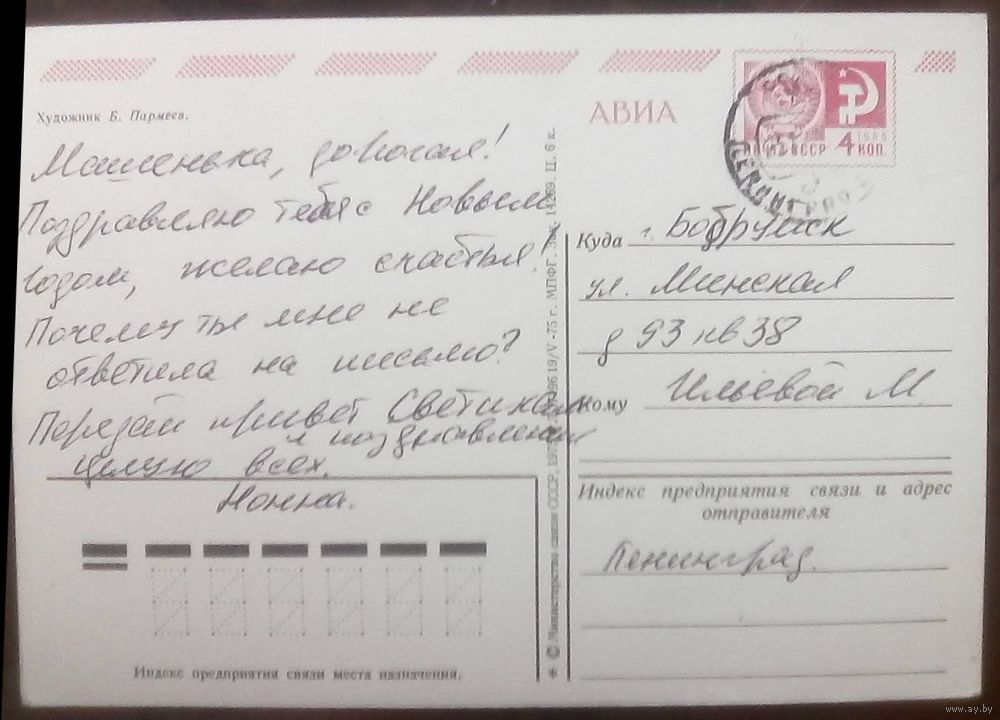 Художник Б. Пармеев.
Машенька, дорогая!
Поздравляю тебя с Новым
годом, желаю счастья!
Почему ты мне не
ответила на письмо?
Передай привет Светикам
и поздравления
целую всех.
Нонна.
Индекс предприятия связи места назначения.
* © Министерство связи СССР, 1975 19/V-75 г. МПФГ. Ц. 6 к.
АВИА
ПОЧТА СССР
1966
4 КОП.
ЛЕНИНГРАД
Куда г. Бобруйск
ул. Минская
д 93 кв 38
Кому Ильевой М
Индекс предприятия связи и адрес
отправителя
Ленинград.
www.ay.by